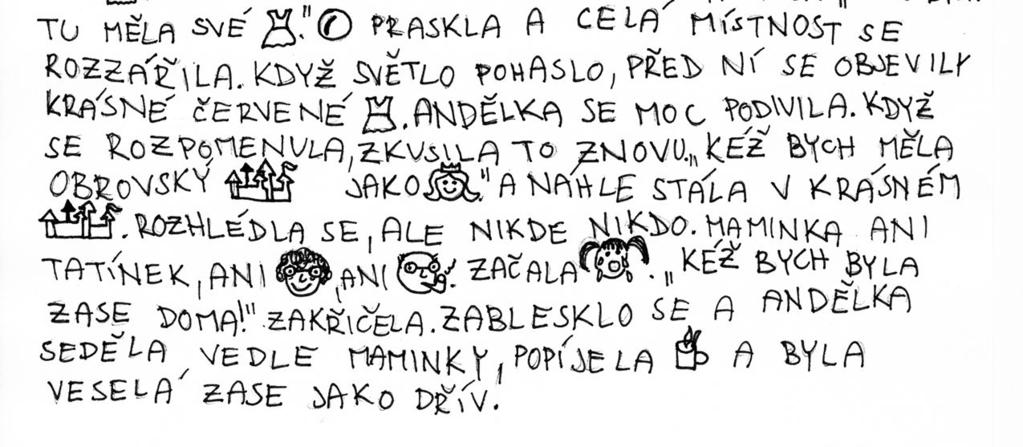 TU MĚLA SVÉ ." PRASKLA A CELÁ MÍSTNOST SE
ROZZÁŘILA. KDYŽ SVĚTLO POHASLO, PŘED NÍ SE OBJEVILY
KRÁSNÉ ČERVENÉ . ANDĚLKA SE MOC PODIVILA. KDYŽ
SE ROZPOMENULA, ZKUSILA TO ZNOVU. „KÉŽ BYCH MĚLA
OBROVSKÝ JAKO ." A NÁHLE STÁLA V KRÁSNÉM
. ROZHLÉDLA SE, ALE NIKDE NIKDO. MAMINKA ANI
TATÍNEK, ANI , ANI . ZAČALA . „KÉŽ BYCH BYLA
ZASE DOMA!" ZAKŘIČELA. ZABLESKLO SE A ANDĚLKA
SEDĚLA VEDLE MAMINKY, POPÍJELA A BYLA
VESELÁ ZASE JAKO DŘÍV.